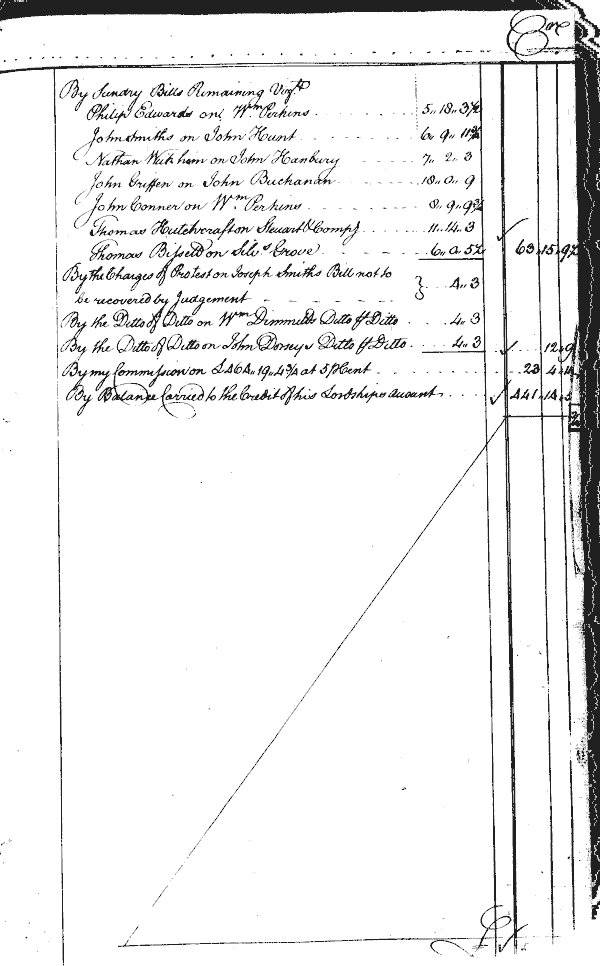 Cr
By Sundry Bills Remaining Viz.t
Philip Edwards on W.m Perkins 5,, 18,, 3½
John Smiths on John Hunt 6,, 9,, 11¾
Nathan Wickham on John Hanbury 7,, 2,, 3
John Griffen on John Buchanan 18,, 0,, 9
John Conner on W.m Perkins 8,, 9,, 9¾
Thomas Hutchcraft on Steuart & Comp.y 11,, 14,, 3
Thomas Bissett on Silv.s Grove 6,, 0,, 5½ 63,, 15,, 9½
By the Charges of Protest on Joseph Smiths Bill not to
be recovered by Judgement 4,, 3
By the Ditto of Ditto on W.m Dimmitts Ditto Ditto 4,, 3
By the Ditto of Ditto on John Dorseys Ditto Ditto 4,, 3 12,, 9
By my Commission on £464,, 19,, 4¾ at 5 p Cent 23 4
By Balance Carried to the Credit of his Lordships account 441,, 14,, 5